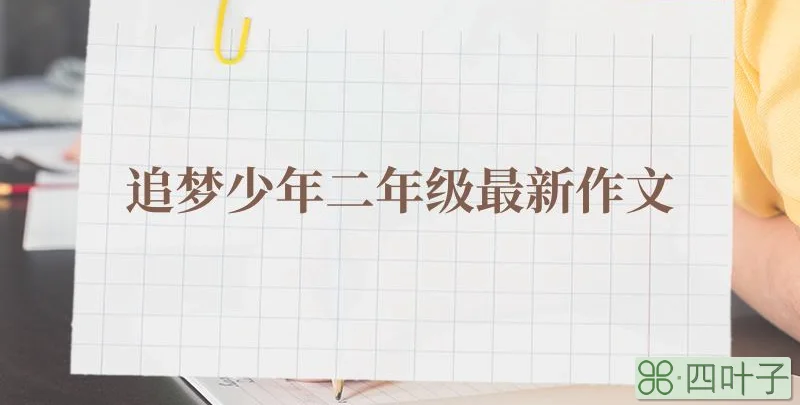 追梦少年二年级最新作文
四叶子